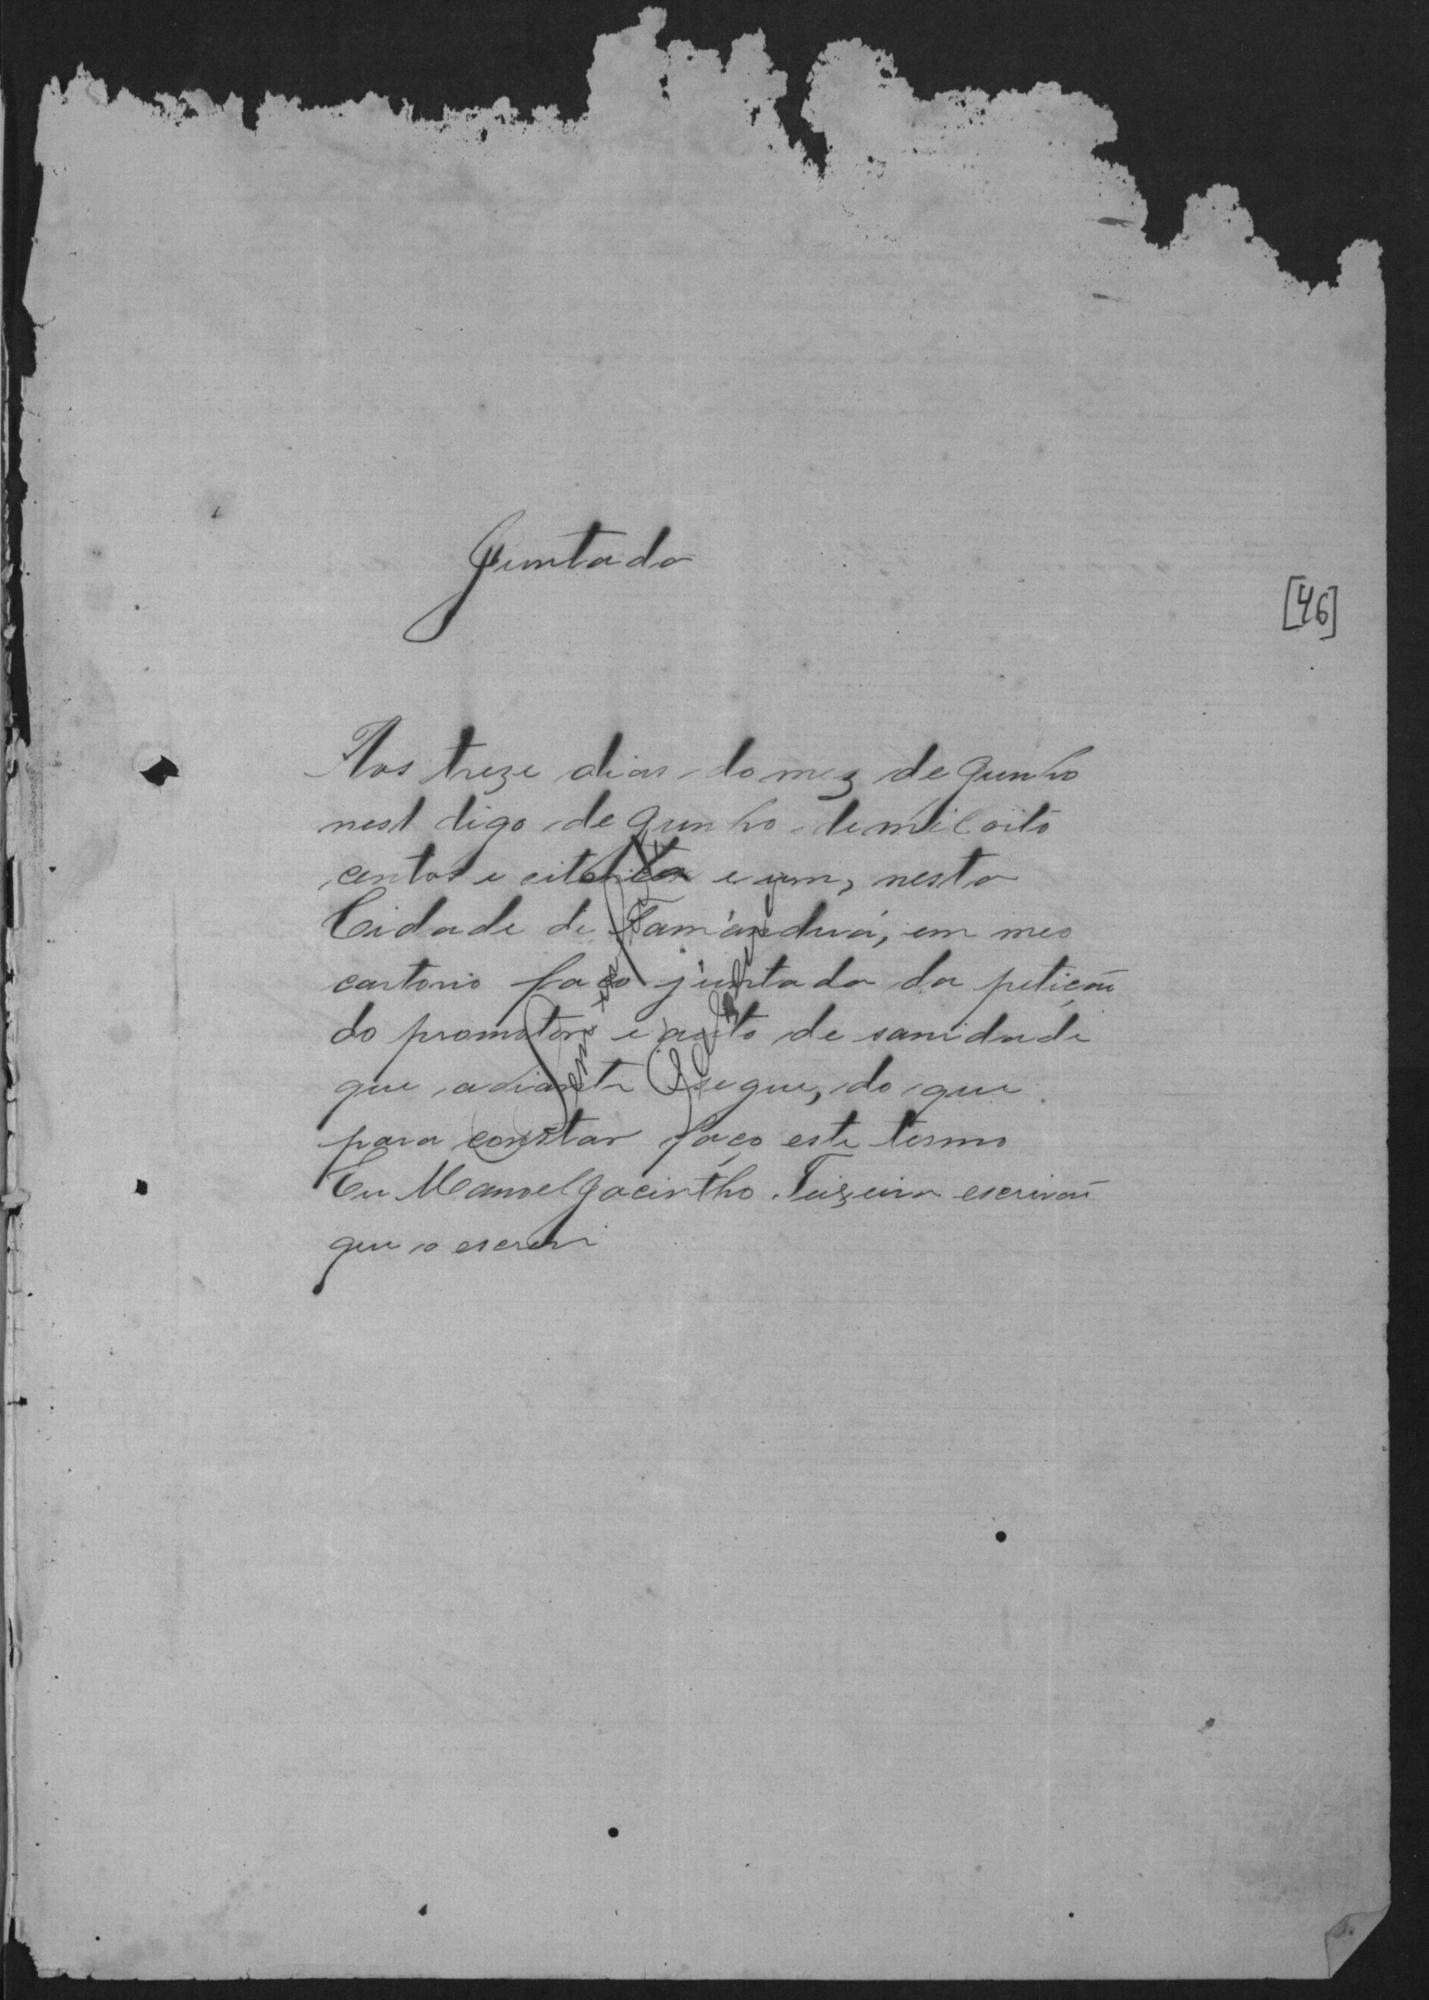 Juntada
[46]
Aos treze dias do mez de Junho
nest digo de Junho de mil oito
centos e oitenta e um, nesta
Cidade de Tamanduá, em meo
cartorio faço juntada da petição
do promotor e auto de sanidade
que adiante segue, do que
para constar faço este termo
Eu Manoel Jacintho Teixeira escrivaõ
que o escrevi